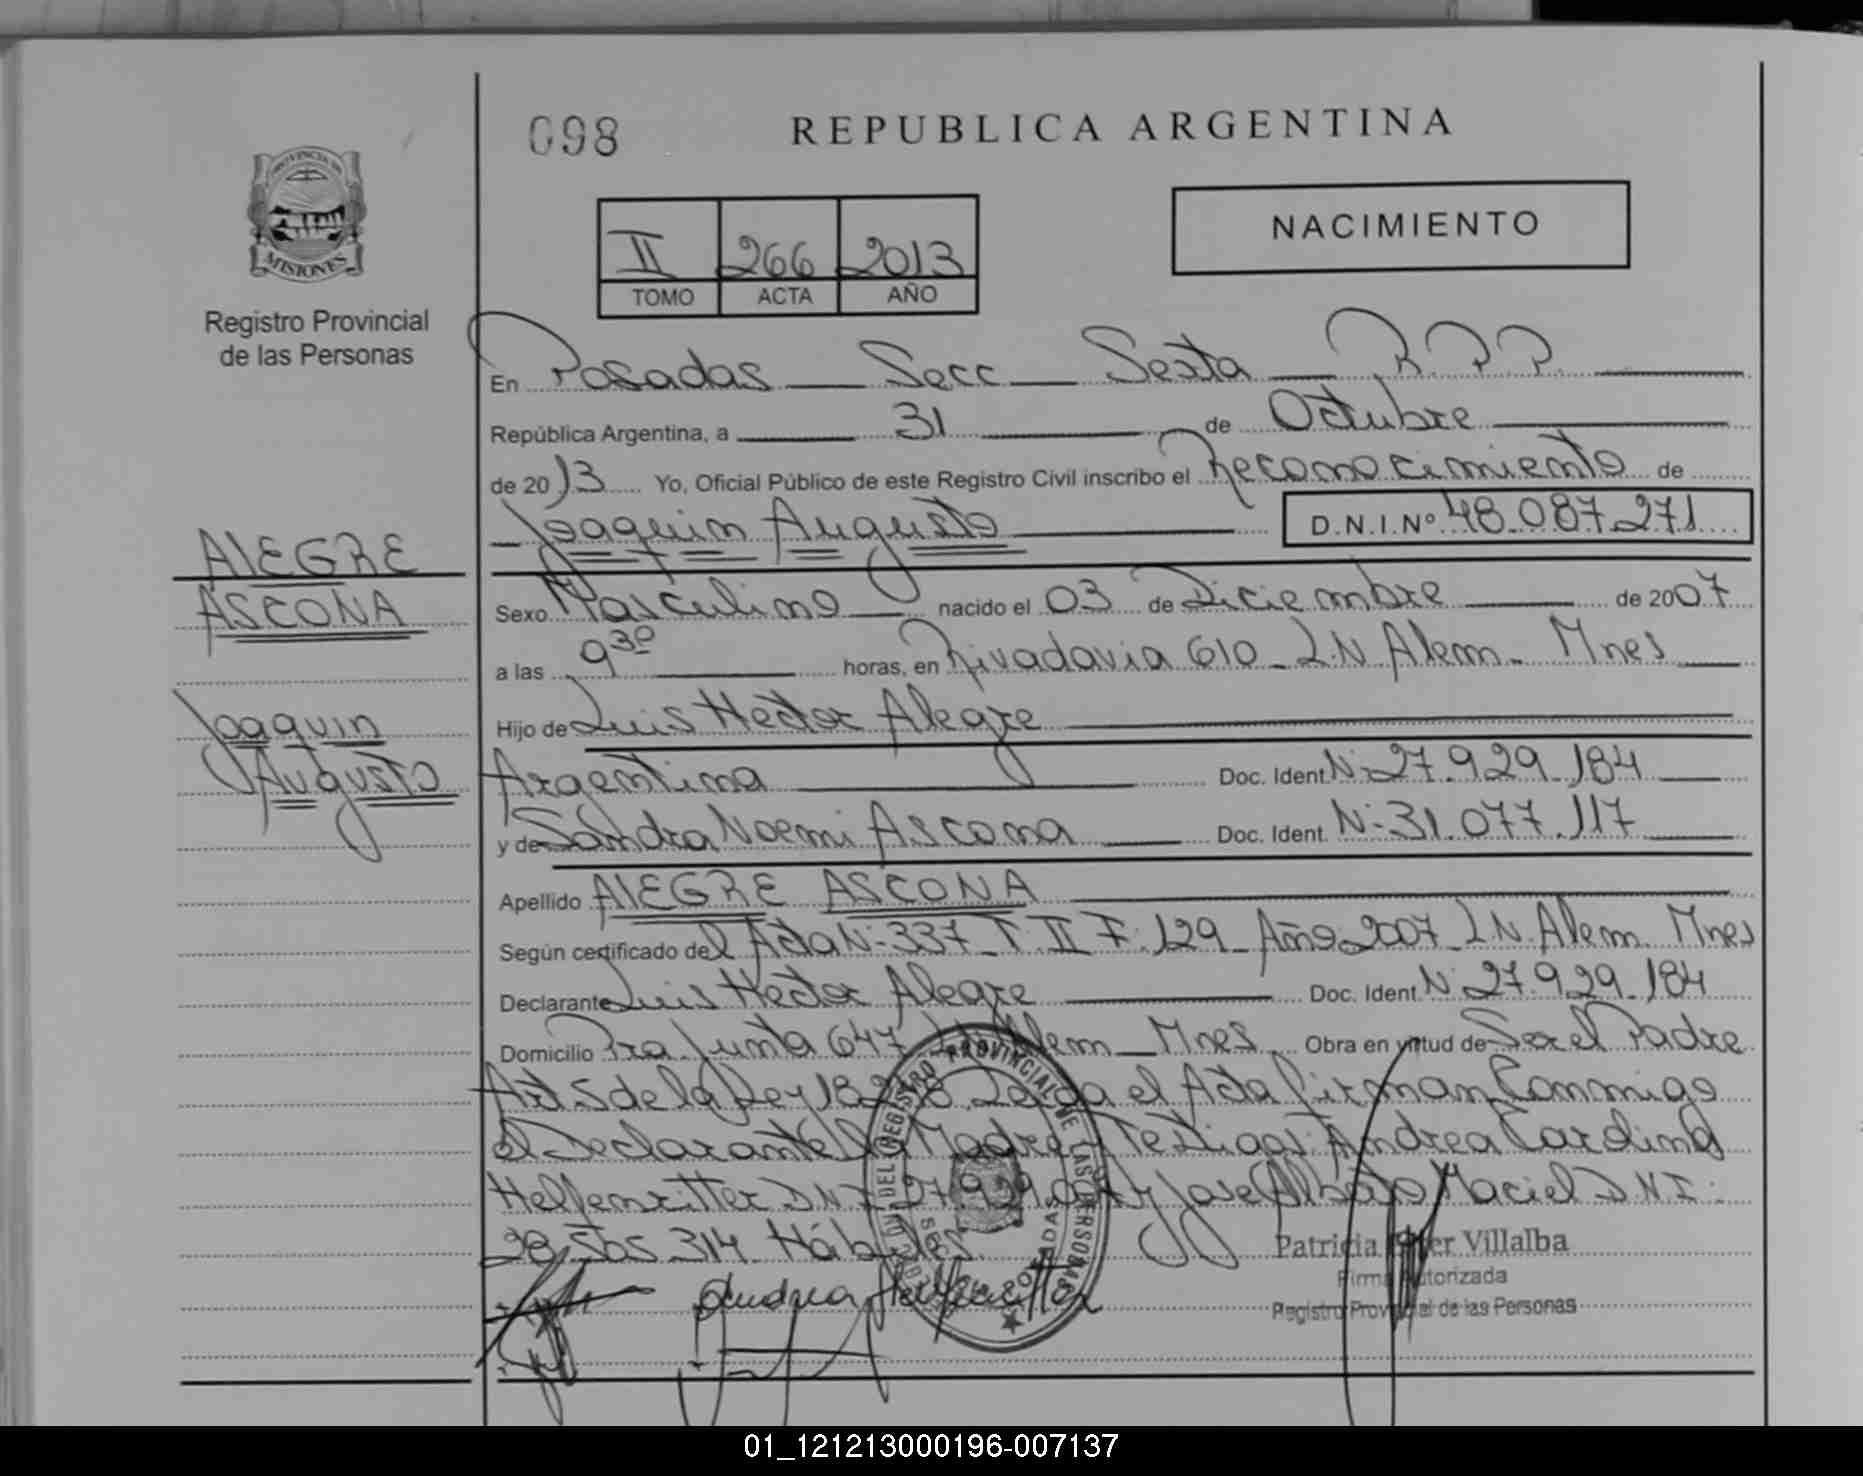 098
REPUBLICA ARGENTINA
PROVINCIA DE
MISIONES
Registro Provincial
de las Personas
II 266 2013
TOMO ACTA AÑO
NACIMIENTO
En Posadas Secc Sexta R.P.P.
República Argentina, a 31 de Octubre
de 2013 Yo, Oficial Público de este Registro Civil inscribo el Reconocimiento de
Joaquin Augusto D.N.I.Nº 48.087.271
ALEGRE
ASCONA
Joaquin
Augusto
Sexo Masculino nacido el 03 de Diciembre de 2007
a las 9 30 horas, en Rivadavia 610 - L.N Alem - Mnes
Hijo de Luis Hector Alegre
Argentina Doc. Ident. Nº 27.929.184
y de Sandra Noemi Ascona Doc. Ident. Nº 31.077.117
Apellido ALEGRE ASCONA
Según certificado del Acta Nº 337 T II F. 129 Año 2007 L N. Alem. Mnes
Declarante Luis Hector Alegre Doc. Ident. Nº 27.929.184
Domicilio Pra. Junta 647 L.N Alem - Mnes Obra en virtud de Ser el Padre
Art 5 de la Ley 18.248. Leida el Acta firman Conmigo
el Declarante la Madre y Testigos: Andrea Carolina
Helfenritter D.N.I. y Jose Alberto Maciel D.N.I:
28.565.314 Hábiles.
Patricia Villalba
Firma Autorizada
Registro Provincial de las Personas
01_121213000196-007137